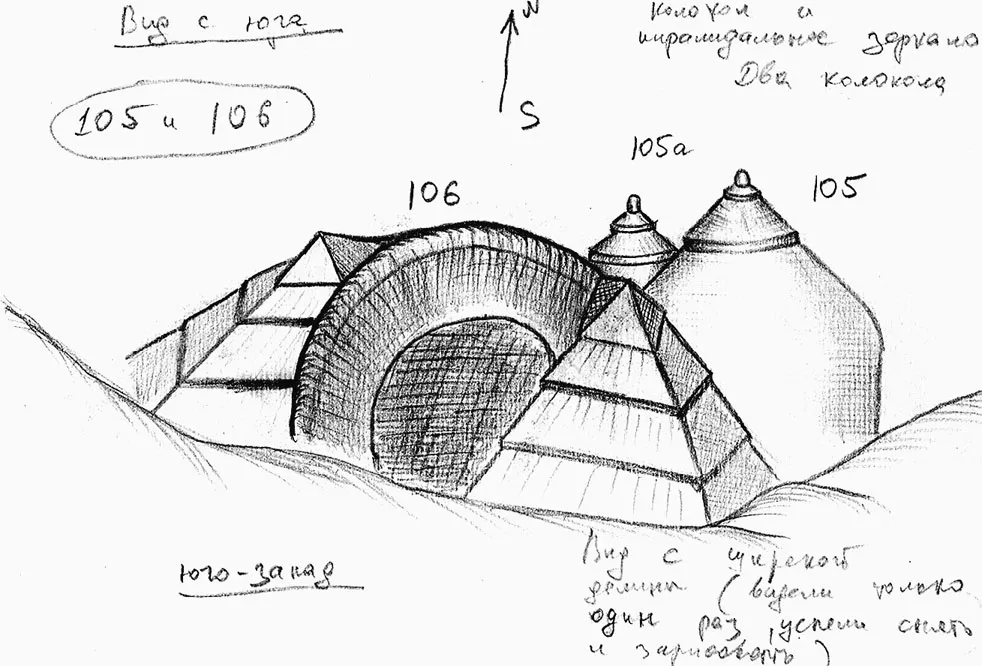 Вид с юга
N
S
105 и 106
Колокол и
пирамидальное зеркало
Два колокола
105а
105
106
юго-запад
Вид с
долины (видели только
один раз, успели снять
и зарисовать)